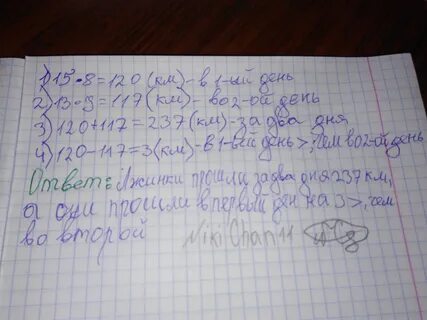 1) 15·8=120 (км)-в 1-ый день
2) 13·9=117(км)-во 2-ой день
3) 120+117=237(км)-за два дня
4) 120-117=3(км)-в 1-вый день >, чем во 2-ой день
Ответ: Лжинки прошли за два дня 237 км,
а они прошли в первый ден на 3 >, чем
во второй Niki Chan 11